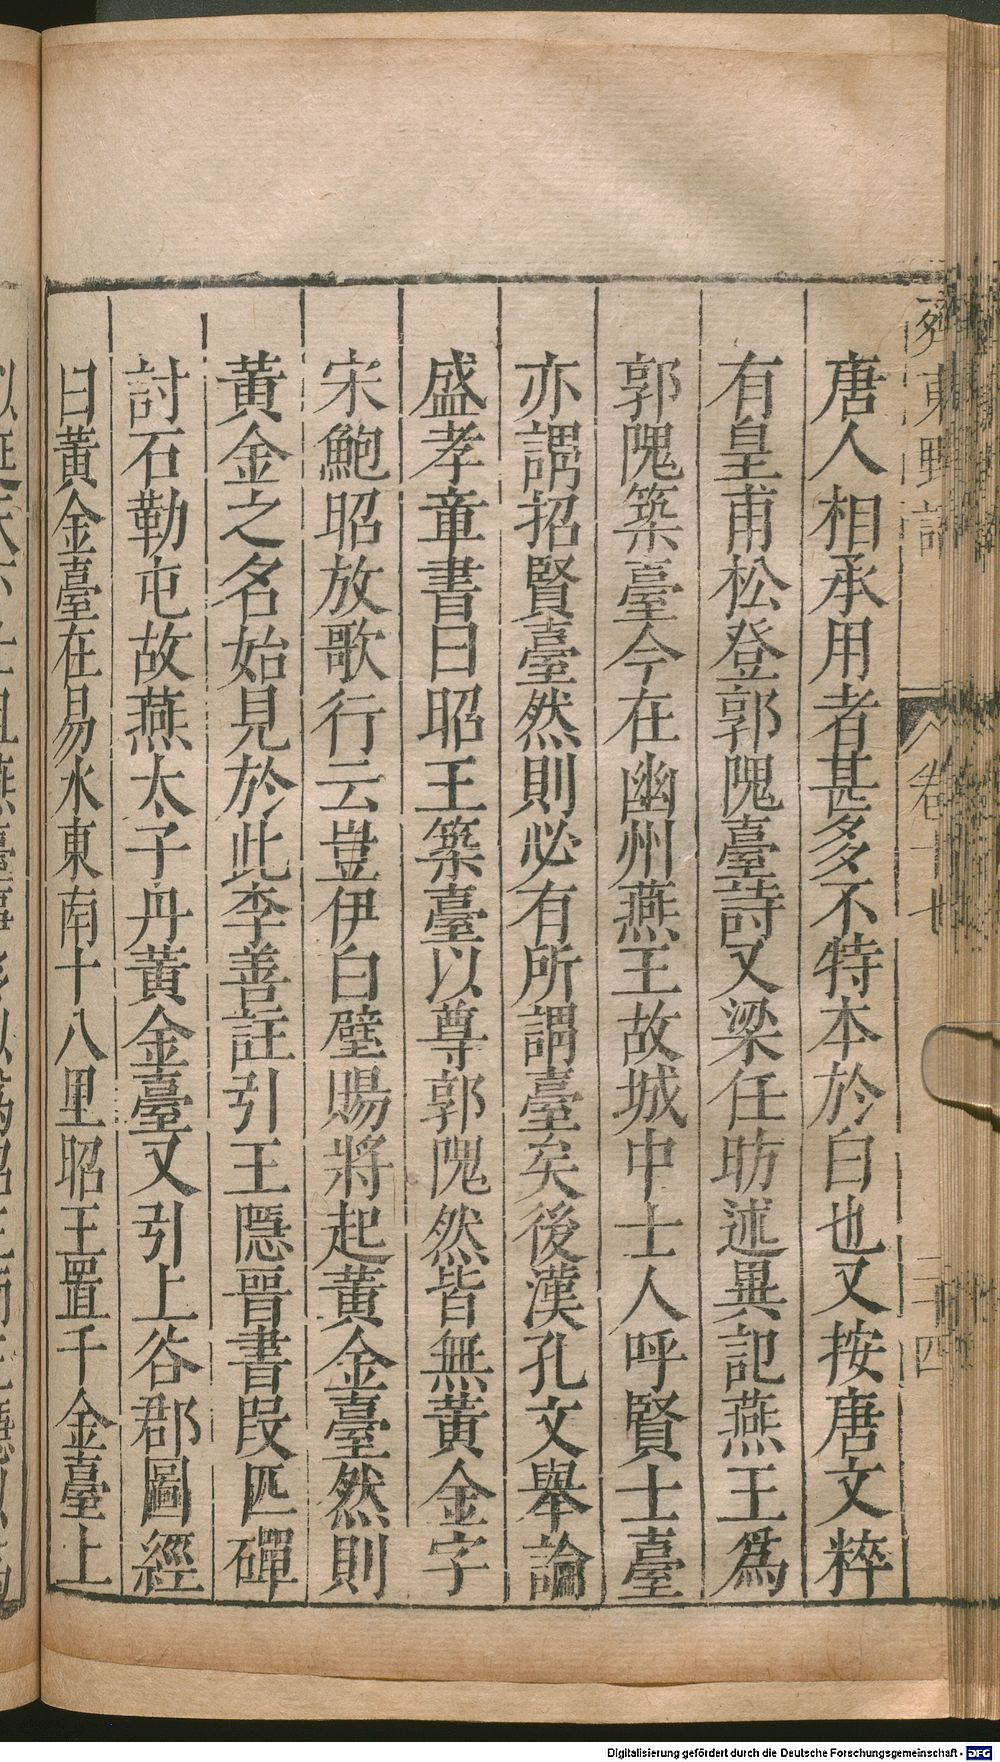 齊東野語
卷十七
二十四
唐人相承用者甚多不特本於白也又按唐文粹
有皇甫松登郭隗臺詩又梁任昉述異記燕王爲
郭隗築臺今在幽州燕王故城中士人呼賢士臺
亦謂招賢臺然則必有所謂臺矣後漢孔文舉論
盛孝章書曰昭王築臺以尊郭隗然皆無黃金字
宋鮑昭放歌行云豈伊白璧賜將起黃金臺然則
黃金之名始見於此李善註引王隱晉書段匹磾
討石勒屯故燕太子丹黃金臺又引上谷郡圖經
曰黃金臺在易水東南十八里昭王置千金臺上
Digitalisierung gefördert durch die Deutsche Forschungsgemeinschaft - DFG